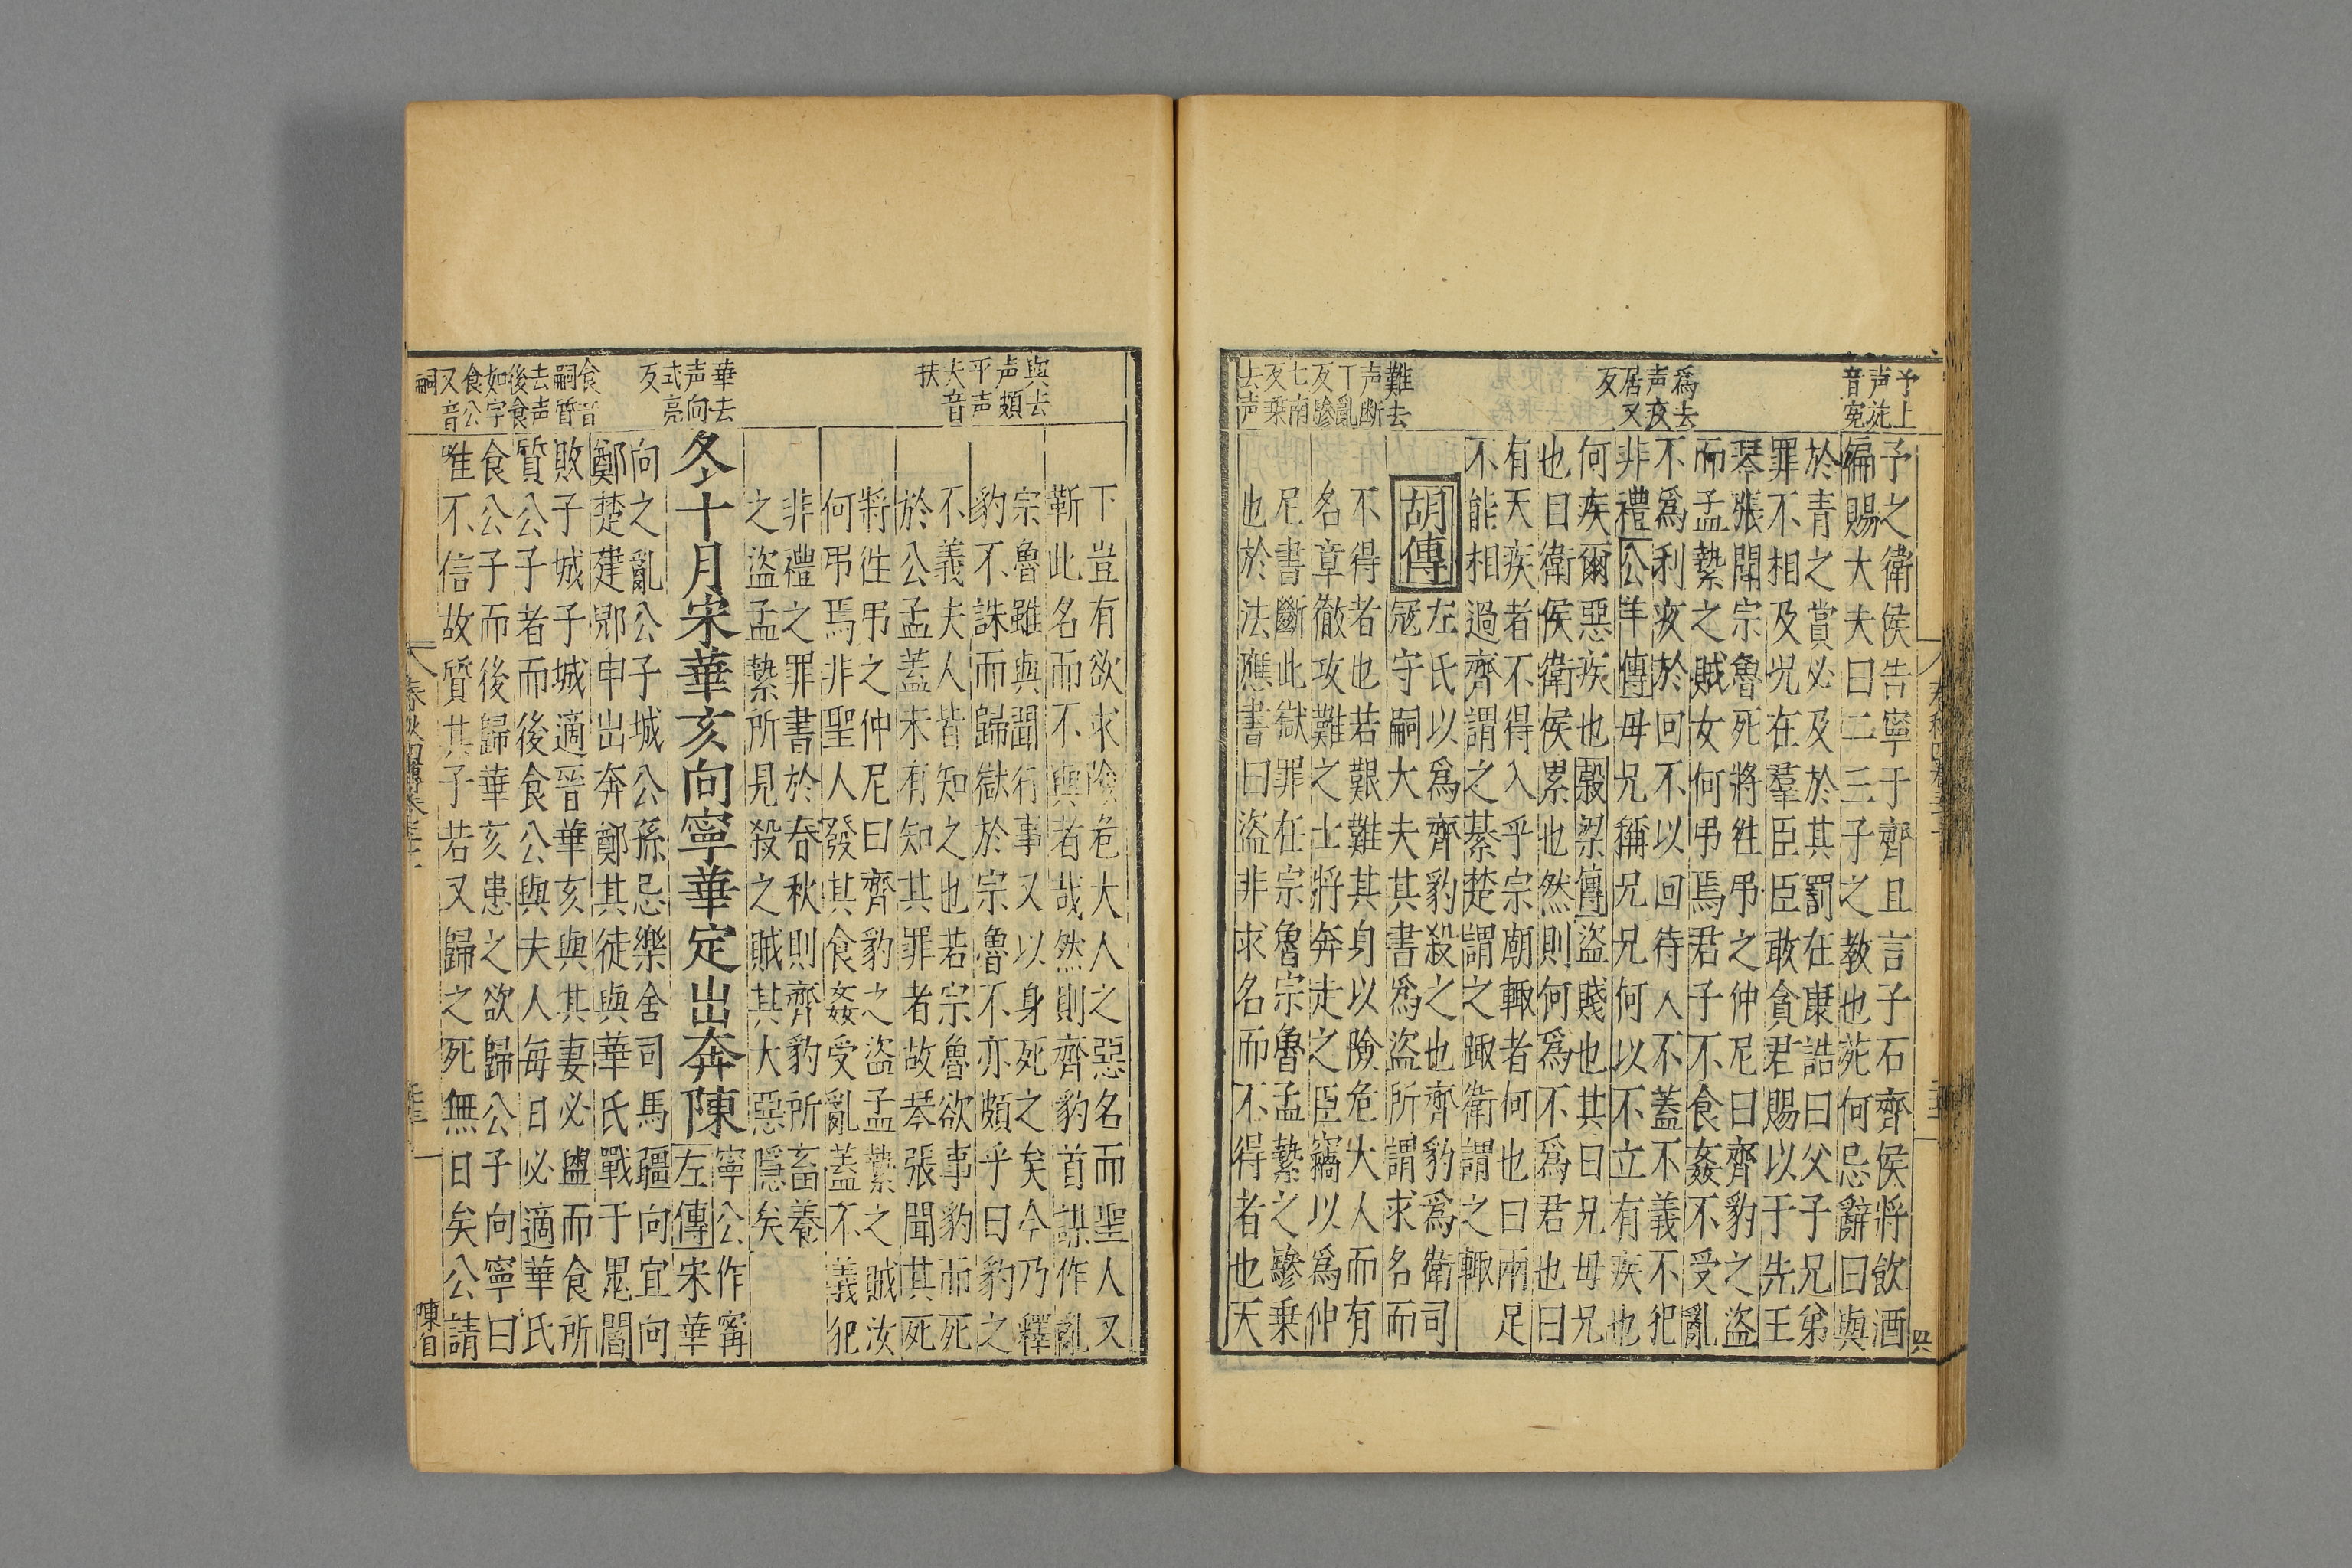 予上
声𫟒
音寃
爲去
声夜
居又
反
難去
声斷
丁亂
反驂
七南
反乗
去声
予之衛侯告寧于齊且言子石齊侯將飲酒
徧賜大夫曰二三子之教也苑何忌辭曰與
於青之賞必及於其罰在康誥曰父子兄弟
罪不相及况在羣臣臣敢貪君賜以干先王
琴張聞宗魯死將徃弔之仲尼曰齊豹之盜
而孟縶之賊女何弔焉君子不食姦不受亂
不爲利疚於回不以回待人不蓋不義不犯
非禮公羊傳母兄稱兄兄何以不立有疾也
何疾爾惡疾也榖梁傳盜賤也其曰兄母兄
也曰衛侯衛侯累也然則何爲不爲君也曰
有天疾者不得入乎宗廟輒者何也曰兩足
不能相過齊謂之綦楚謂之踂衛謂之輒
胡傳
左氏以爲齊豹殺之也齊豹爲衛司
冦守嗣大夫其書爲盜所謂求名而
不得者也若艱難其身以險危大人而有
名章徹攻難之士將奔走之臣竊以爲仲
尼書斷此獄罪在宗魯宗魯孟縶之驂乗
也於法應書曰盜非求名而不得者也天
與去
声頗
平声
夫音
扶
華去
声向
式亮
反
食音
嗣質
去声
後食
如字
食公
又音
嗣
下豈有欲求險危大人之惡名而聖人又
靳此名而不與者哉然則齊豹首謀作亂
宗魯雖與聞行事又以身死之矣今乃釋
豹不誅而歸獄於宗魯不亦頗乎曰豹之
不義夫人皆知之也若宗魯欲事豹而死
於公孟蓋未有知其罪者故琴張聞其死
將徃弔之仲尼曰齊豹之盜孟縶之賊汝
何弔焉非聖人發其食姦受亂蓋不義犯
非禮之罪書於春秋則齊豹所畜養
之盜孟縶所見殺之賊其大惡隱矣
冬十月宋華亥向寧華定出奔陳
寧公作寗
左傳宋華
向之亂公子城公孫忌樂舍司馬疆向宜向
鄭楚建郳申出奔鄭其徒與華氏戰于鬼閻
敗子城子城適晉華亥與其妻必盥而食所
質公子者而後食公與夫人每日必適華氏
食公子而後歸華亥患之欲歸公子向寧曰
唯不信故質其子若又歸之死無日矣公請
陳自